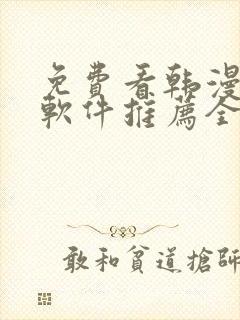 免費看韩漫
軟件推薦全
敢和貧道搶師